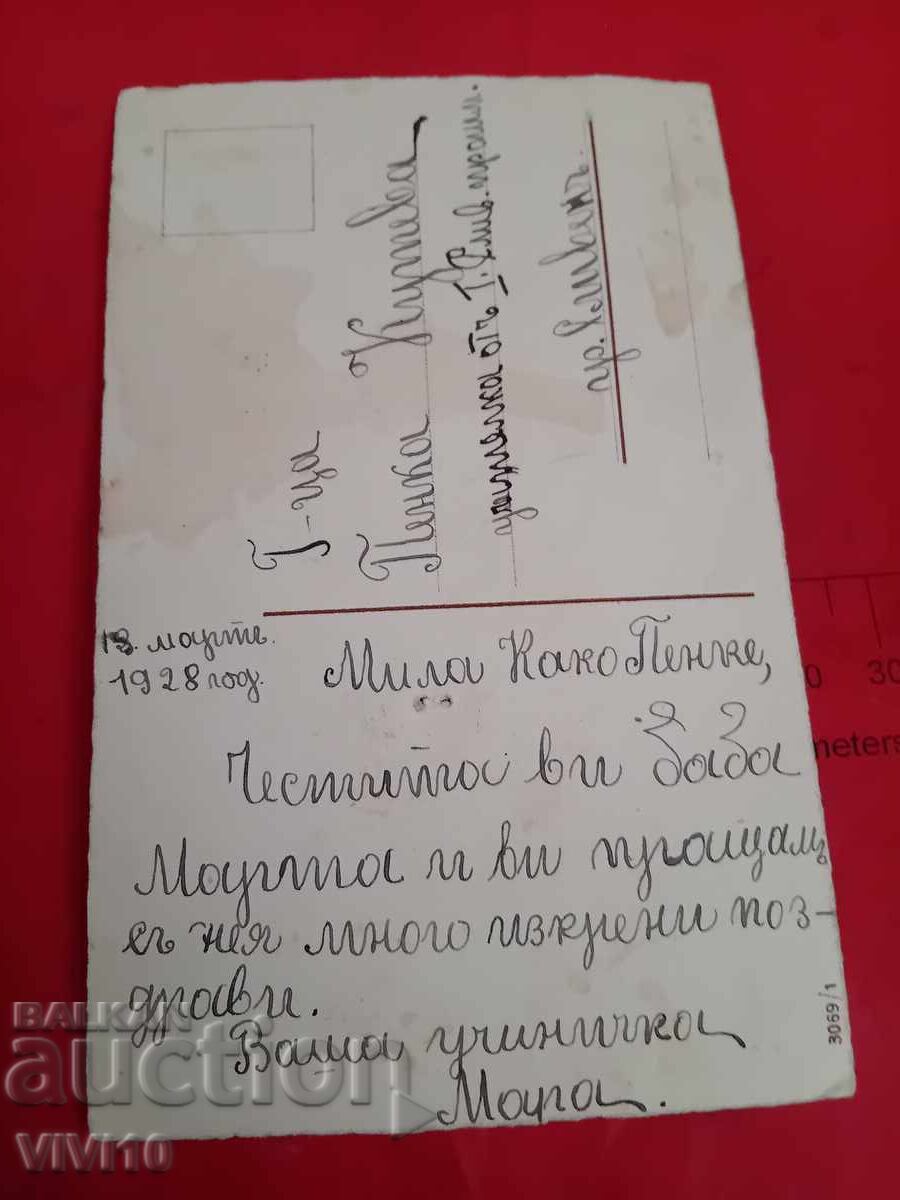 Г-ца
Пенка Кутева
учителка отъ Т. Слив. прогим.
гр. Сливенъ.
13. мартъ.
1928 год.
Мила Како Пенке,
Честита ви баба
Марта и ви пращамъ
съ нея много искрени поз-
драви.
Ваша учиничка
Мара.
3069/1
30
meters
BALKAN
auction
VIVI10